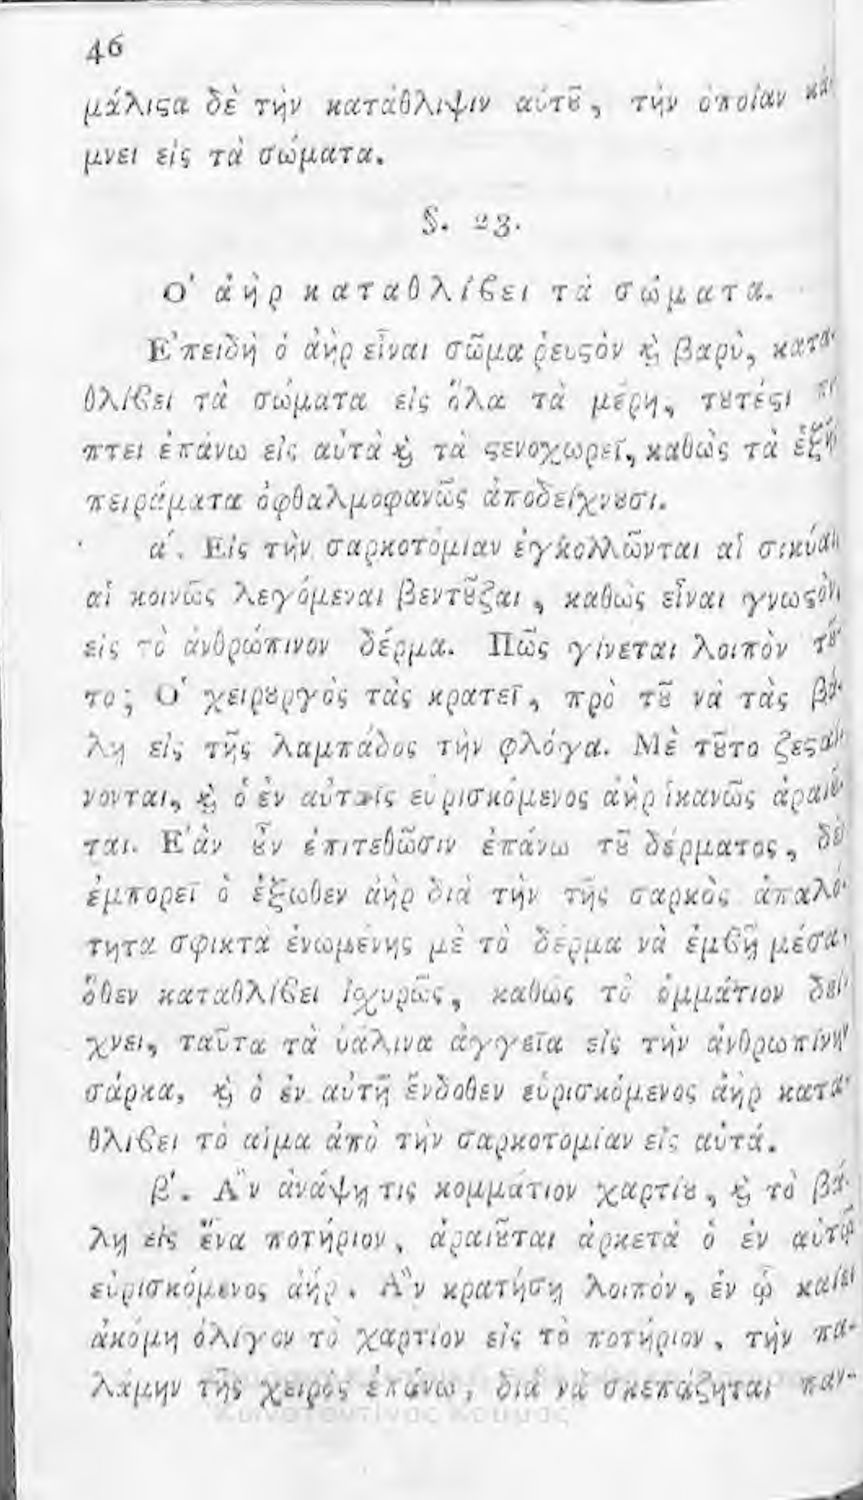 46
μάλιςα δὲ τὴν κατάθλιψιν αὐτȣ͂, τὴν ὁποίαν κά-
μνει εἰς τὰ σώματα.
§. 23.
Ο᾿ ἀὴρ καταθλίϐει τὰ σώματα.
Ε᾿πειδὴ ὁ ἀὴρ εἶναι σῶμα ῥευςὸν ϗ̀ βαρὺ, κατα-
θλίϐει τὰ σώματα εἰς ὅλα τὰ μέρη, τȣτέςι πί-
πτει ἐπάνω εἰς αὐτὰ ϗ̀ τὰ ςενοχωρεῖ, καθὼς τὰ ἑξῆς
πειράματα ὀφθαλμοφανῶς ἀποδείχνȣσι.
α΄. Εἰς τὴν σαρκοτομίαν ἐγκολλῶνται αἱ σικύαι
αἱ κοινῶς λεγόμεναι βεντȣ͂ζαι, καθὼς εἶναι γνωςὸν,
εἰς τὸ ἀνθρώπινον δέρμα. Πῶς γίνεται λοιπὸν τȣ͂-
το; Ο῾ χειρȣργὸς τὰς κρατεῖ, πρὸ τȣ͂ νὰ τὰς βά-
λῃ εἰς τῆς λαμπάδος τὴν φλόγα. Μὲ τȣ͂το ζεςαί-
νονται, ϗ̀ ὁ ἐν αὐταῖς εὑρισκόμενος ἀὴρ ἱκανῶς ἀραιȣ͂-
ται. Ε᾿ὰν ȣ̓͂ν ἐπιτεθῶσιν ἐπάνω τȣ͂ δέρματος, δὲν
ἐμπορεῖ ὁ ἔξωθεν ἀὴρ διὰ τὴν τῆς σαρκὸς ἁπαλό-
τητα σφικτὰ ἑνωμένης μὲ τὸ δέρμα νὰ ἐμϐῇ μέσα·
ὅθεν καταθλίϐει ἰσχυρῶς, καθὼς τὸ ὀμμάτιον δεί-
χνει, ταῦτα τὰ ὑάλινα ἀγγεῖα εἰς τὴν ἀνθρωπίνην
σάρκα, ϗ̀ ὁ ἐν αὐτῇ ἔνδοθεν εὑρισκόμενος ἀὴρ κατα-
θλίϐει τὸ αἷμα ἀπὸ τὴν σαρκοτομίαν εἰς αὐτά.
β΄. Α῍ν ἀνάψῃ τις κομμάτιον χαρτίȣ, ϗ̀ τὸ βά-
λῃ εἰς ἕνα ποτήριον, ἀραιȣ͂ται ἀρκετὰ ὁ ἐν αὐτῷ
εὑρισκόμενος ἀήρ. Α῍ν κρατήσῃ λοιπὸν, ἐν ᾧ καίει
ἀκόμη ὀλίγον τὸ χαρτίον εἰς τὸ ποτήριον, τὴν πα-
λάμην τῆς χειρὸς ἐπάνω, διὰ νὰ σκεπάζηται παν-
Κωνσταντίνος Κούμας